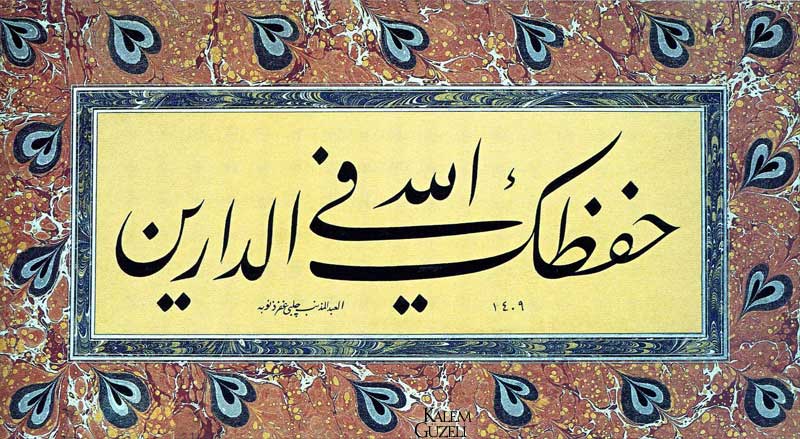 حفظك الله في الدارين
١٤٠٩
العبد المذنب چلبي غفر ذنوبه
KALEM
GÜZELİ